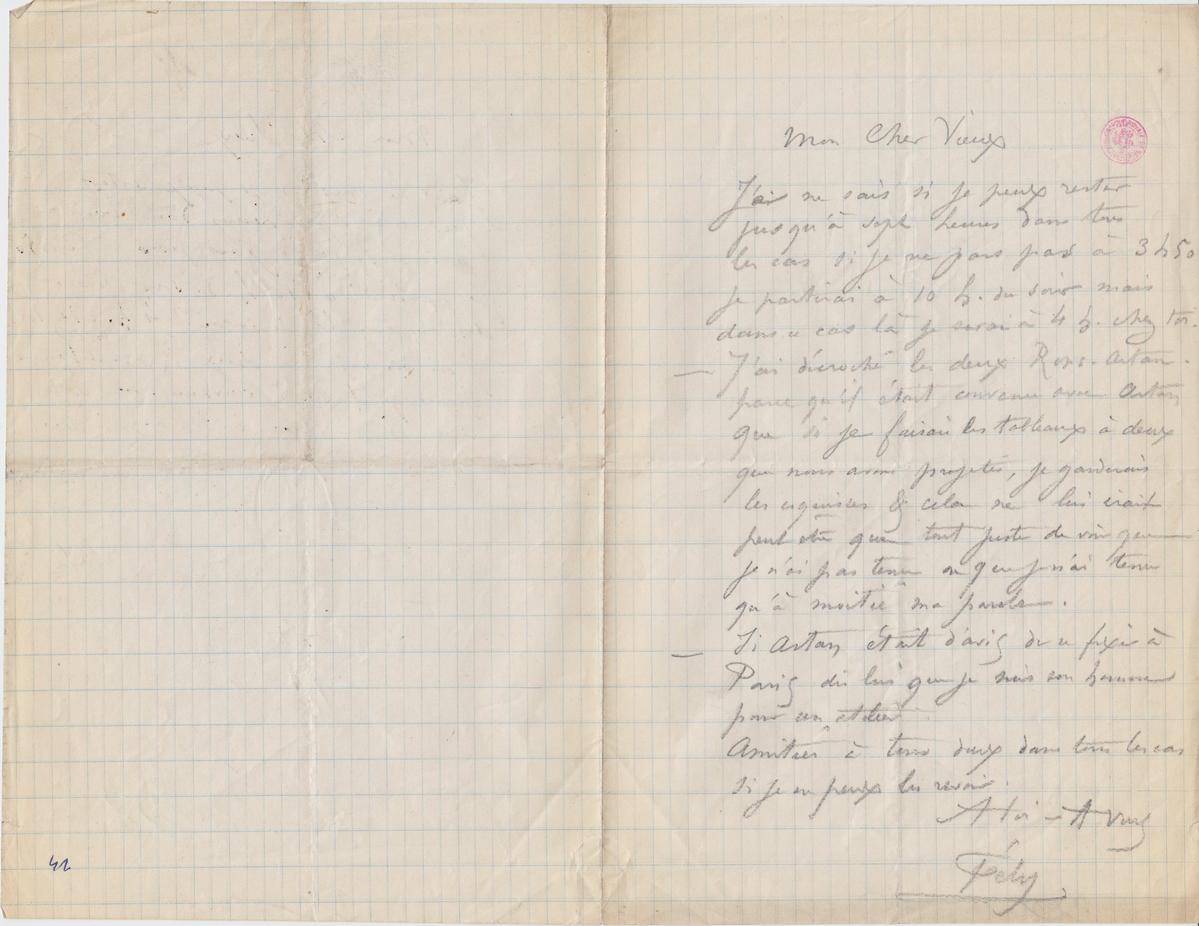 Mon Cher Vieux
J'ai ne sais si je peux rester
jusqu'à sept heures dans tous
les cas si je ne pars pas à 3 h 50
je partirai à 10 h. du soir mais
dans ce cas là je serai à 4 h. chez toi.
— J'ai décroché les deux Rops-Artan.
parce qu'il était convenu avec Artan
que si je faisais les tableaux à deux
que nous avons projetés, je garderais
les esquisses & cela ne lui irait
peut être que tout juste de voir que
je n'ai pas tenu ou que je n'ai tenu
qu'à moitié ma parole.
— Si Artan était d'avis de se fixer à
Paris dis lui que je suis son homme
pour un atelier
Amitiés à tous deux dans tous les cas
si je ne peux les revoir.
A toi – A vous
Fély
42